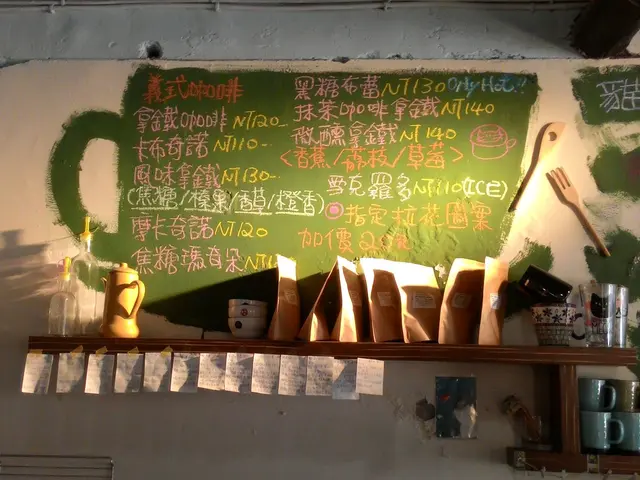 義式咖啡
拿鐵咖啡 NT120
卡布奇諾 NT110
風味拿鐵 NT130
(焦糖/榛果/香草/橙香)
摩卡奇諾 NT120
焦糖瑪奇朵 NT1
黑糖布蕾 NT130 Only Hot!!
抹茶咖啡拿鐵 NT140
微醺拿鐵 NT140
<香蕉/荔枝/草莓>
雪克羅多 NT110 (ICE)
指定拉花圖案
加價20元